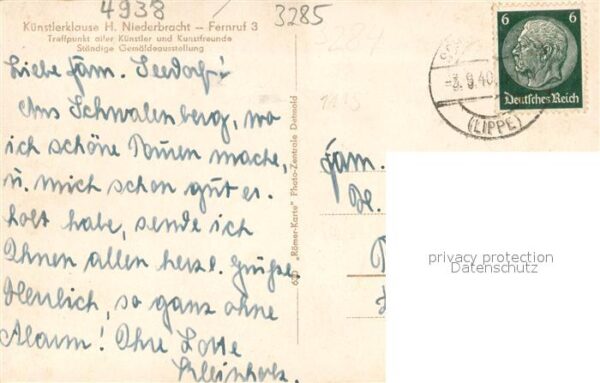 4938
3285
Künstlerklause H. Niederbracht — Fernruf 3
Treffpunkt aller Künstler und Kunstfreunde
Ständige Gemäldeausstellung
6 6
Deutsches Reich
-3.9.40.
(LIPPE)
Liebe Fam. Seedorf!
Aus Schwalenberg, wo
ich schöne Touren mache,
u. mich schon gut er-
holt habe, sende ich
Ihnen allen herzl. Grüße.
Herrlich, so ganz ohne
Alarm! Ihre Lotte
Kleinholz.
"Römer-Karte" Photo-Zentrale Detmold
Fam.
privacy protection
Datenschutz